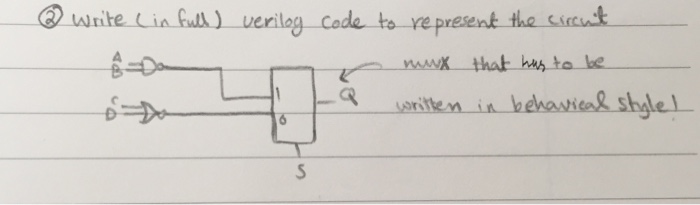 ② Write (in full) verilog code to represent the circuit
A
B
mux that has to be
1
Q
C
D
0
written in behavioral style!
S